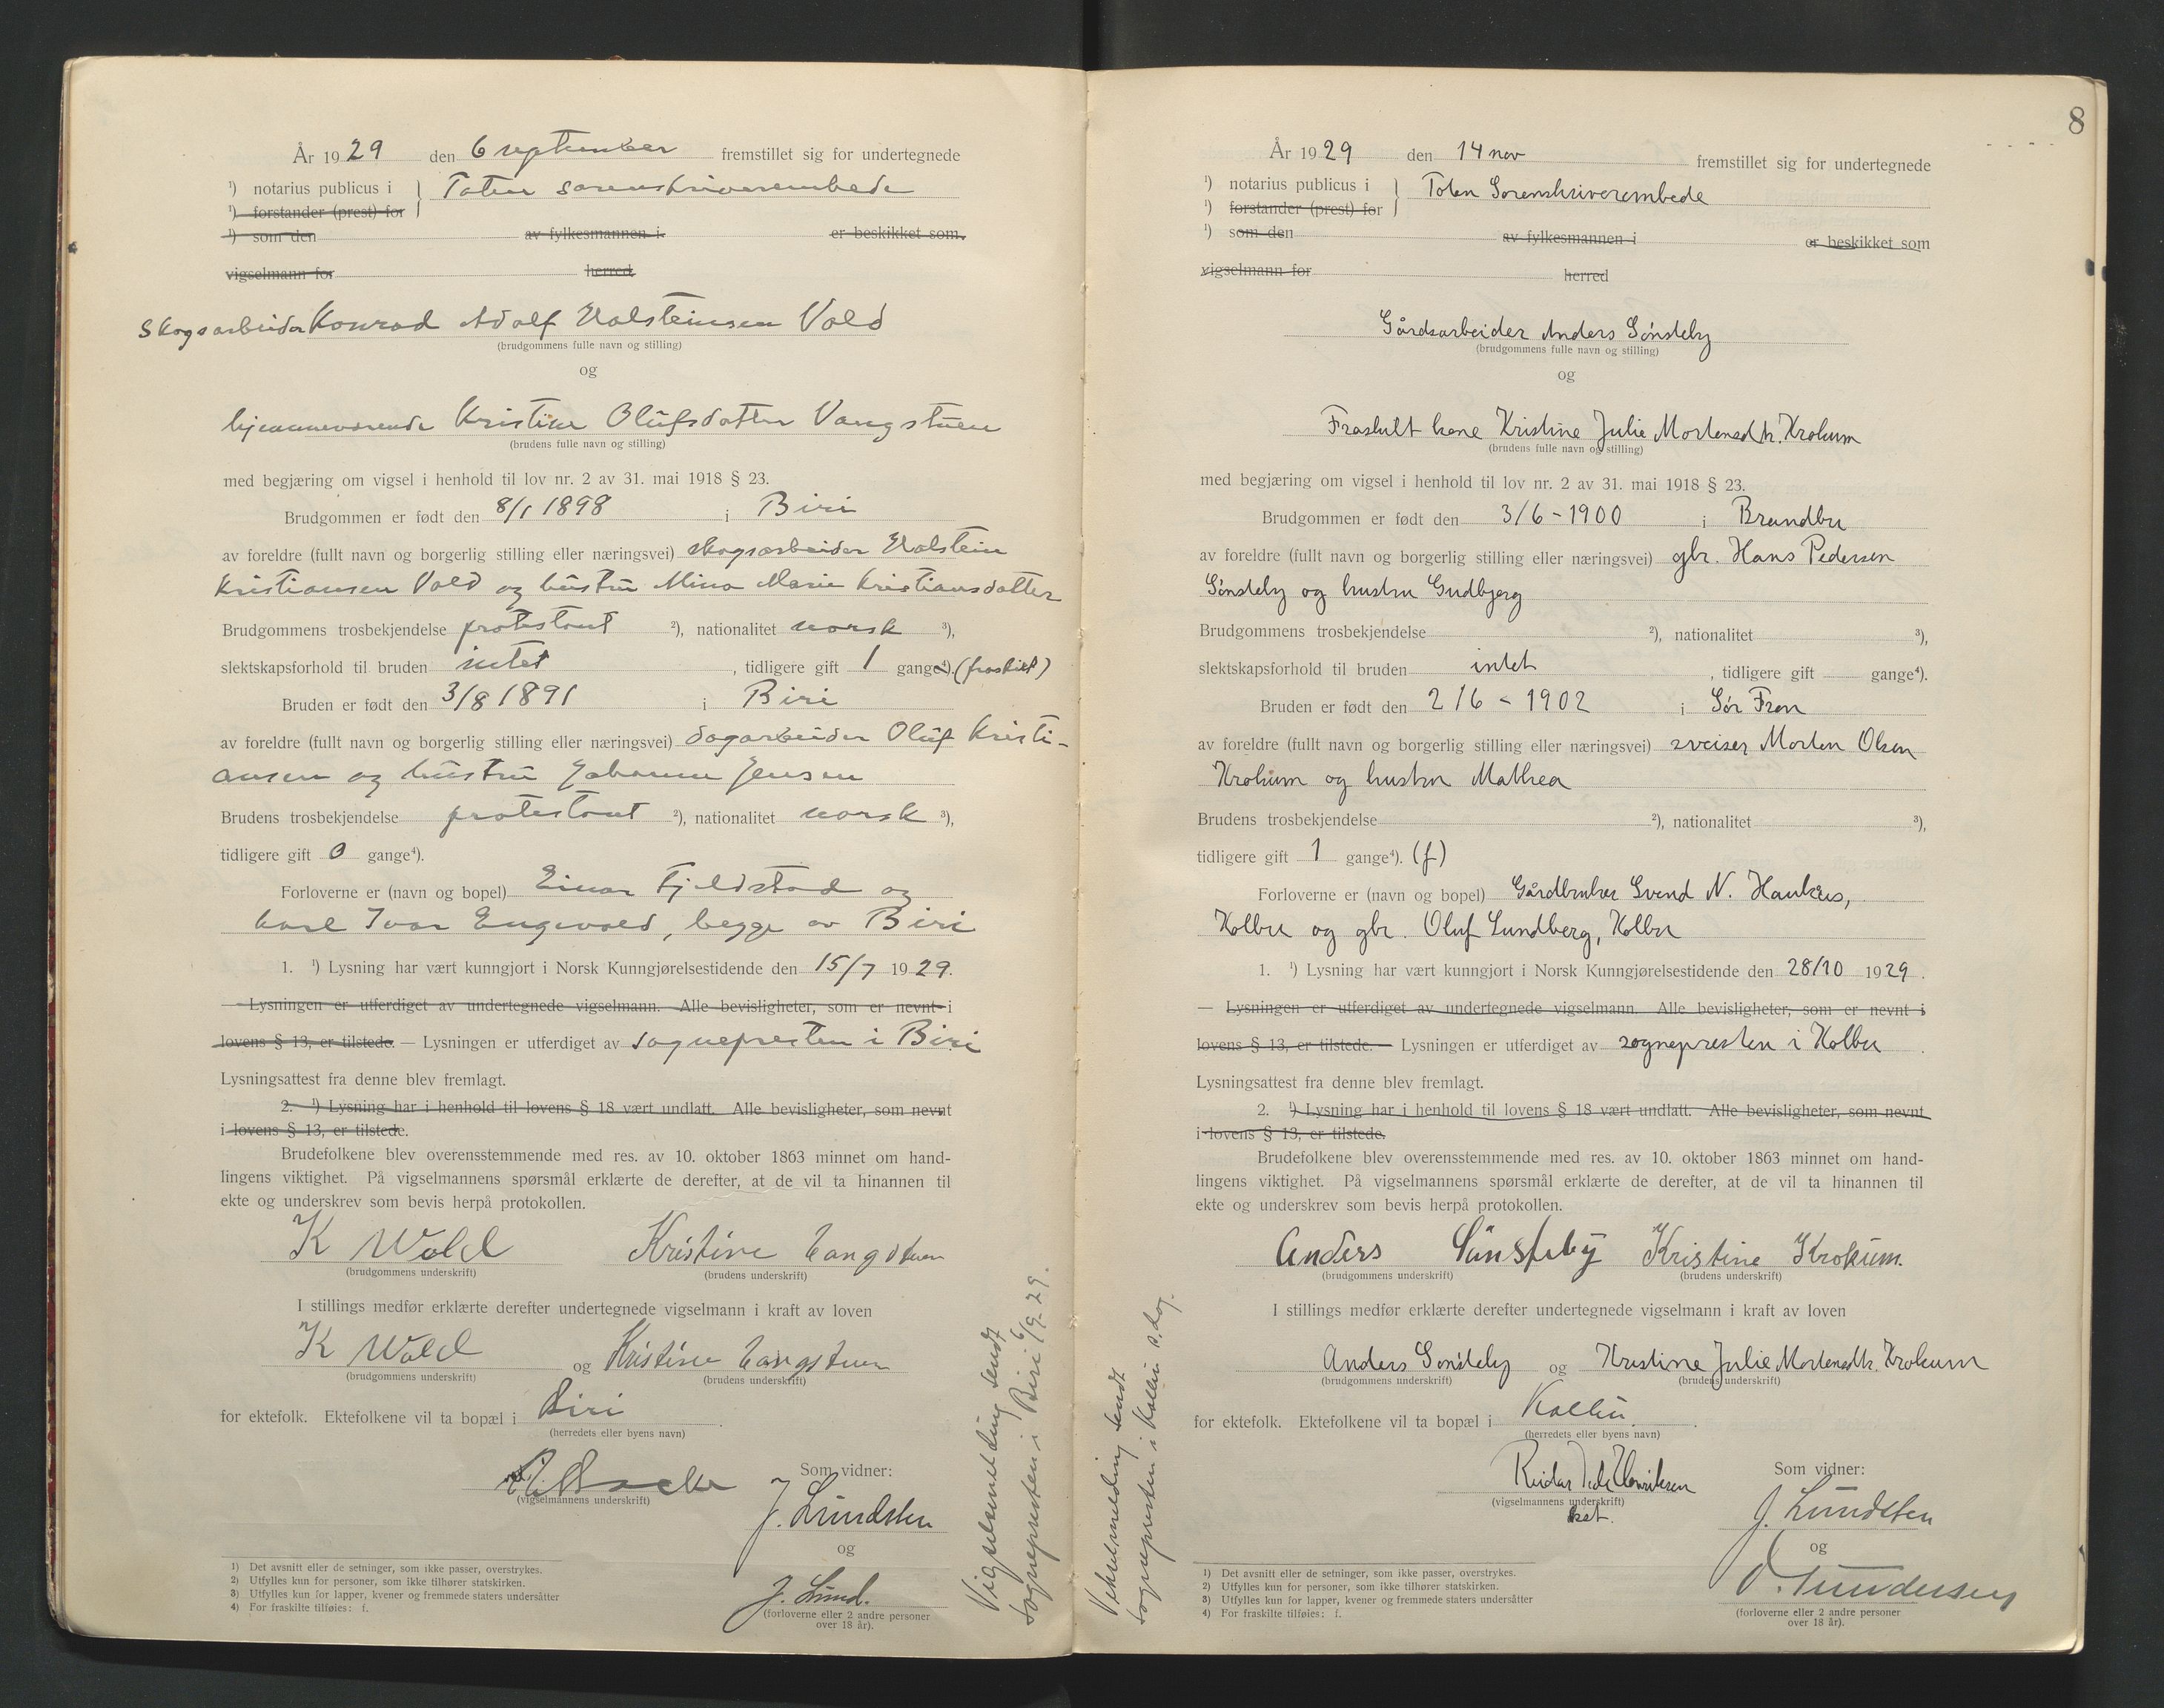 År 1929 den 6 september fremstillet sig for undertegnede
¹) notarius publicus i } Toten sorenskriverembede
¹) forstander (prest) for
¹) som den av fylkesmannen i er beskikket som
vigselmann for herred
Skogsarbeider Konrad Adolf Halsteinsen Vold
(brudgommens fulle navn og stilling)
og
hjemmeværende Kristine Olufsdatter Vangstuen
(brudens fulle navn og stilling)
med begjæring om vigsel i henhold til lov nr. 2 av 31. mai 1918 § 23.
Brudgommen er født den 8/1 1898 i Biri
av foreldre (fullt navn og borgerlig stilling eller næringsvei) skogsarbeider Halstein
Kristiansen Vold og hustru Mina Marie Kristiansdatter
Brudgommens trosbekjendelse protestant ²), nationalitet norsk ³),
slektskapsforhold til bruden intet , tidligere gift 1 gange⁴). (fraskilt)
Bruden er født den 3/8 1891 i Biri
av foreldre (fullt navn og borgerlig stilling eller næringsvei) dagarbeider Oluf Kristi-
ansen og hustru Johanne Jensen
Brudens trosbekjendelse protestant ²), nationalitet norsk ³),
tidligere gift 0 gange⁴).
Forloverne er (navn og bopel) Einar Fjeldstad og
Karl Ivar Engevold, begge av Biri
1. ¹) Lysning har vært kunngjort i Norsk Kunngjørelsestidende den 15/7 1929.
— Lysningen er utferdiget av undertegnede vigselmann. Alle bevisligheter, som er nevnt i
lovens § 13, er tilstede. — Lysningen er utferdiget av sognepresten i Biri
Lysningsattest fra denne blev fremlagt.
2. ¹) Lysning har i henhold til lovens § 18 vært undlatt. Alle bevisligheter, som nevnt
i lovens § 13, er tilstede.
Brudefolkene blev overensstemmende med res. av 10. oktober 1863 minnet om hand-
lingens viktighet. På vigselmannens spørsmål erklærte de derefter, at de vil ta hinannen til
ekte og underskrev som bevis herpå protokollen.
K Wold Kristine Vangstuen
(brudgommens underskrift) (brudens underskrift)
I stillings medfør erklærte derefter undertegnede vigselmann i kraft av loven
K Wold og Kristine Vangstuen
(brudgommens underskrift) (brudens underskrift)
for ektefolk. Ektefolkene vil ta bopæl i Biri .
(herredets eller byens navn)
(vigselmannens underskrift)
Som vidner:
J. Lundsten
og
J. Lund.
(forloverne eller 2 andre personer
over 18 år).
1) Det avsnitt eller de setninger, som ikke passer, overstrykes.
2) Utfylles kun for personer, som ikke tilhører statskirken.
3) Utfylles kun for lapper, kvener og fremmede staters undersåtter
4) For fraskilte tilføies: f.
Vigselsmelding sendt
sognepresten i Biri 6/9-29.
8
År 1929 den 14 nov fremstillet sig for undertegnede
¹) notarius publicus i } Toten Sorenskriverembede
¹) forstander (prest) for
¹) som den av fylkesmannen i er beskikket som
vigselmann for herred
Gårdsarbeider Anders Sønsteby
(brudgommens fulle navn og stilling)
og
Fraskilt kone Kristine Julie Mortensdtr. Krokum
(brudens fulle navn og stilling)
med begjæring om vigsel i henhold til lov nr. 2 av 31. mai 1918 § 23.
Brudgommen er født den 3/6 - 1900 i Brandbu
av foreldre (fullt navn og borgerlig stilling eller næringsvei) gbr. Hans Pedersen
Sønsteby og hustru Gudbjørg
Brudgommens trosbekjendelse ²), nationalitet ³),
slektskapsforhold til bruden intet , tidligere gift gange⁴).
Bruden er født den 2/6 - 1902 i Sør Fron
av foreldre (fullt navn og borgerlig stilling eller næringsvei) sveiser Morten Olsen
Krokum og hustru Mathea
Brudens trosbekjendelse ²), nationalitet ³),
tidligere gift 1 gange⁴). (f)
Forloverne er (navn og bopel) Gårdbruker Svend N. Haukås,
Kolbu og gbr. Oluf Lundberg, Kolbu
1. ¹) Lysning har vært kunngjort i Norsk Kunngjørelsestidende den 28/10 1929.
— Lysningen er utferdiget av undertegnede vigselmann. Alle bevisligheter, som er nevnt i
lovens § 13, er tilstede. — Lysningen er utferdiget av sognepresten i Kolbu .
Lysningsattest fra denne blev fremlagt.
2. ¹) Lysning har i henhold til lovens § 18 vært undlatt. Alle bevisligheter, som nevnt
i lovens § 13, er tilstede.
Brudefolkene blev overensstemmende med res. av 10. oktober 1863 minnet om hand-
lingens viktighet. På vigselmannens spørsmål erklærte de derefter, at de vil ta hinannen til
ekte og underskrev som bevis herpå protokollen.
Anders Sünsteby Kristine Krokum.
(brudgommens underskrift) (brudens underskrift)
I stillings medfør erklærte derefter undertegnede vigselmann i kraft av loven
Anders Sønsteby og Kristine Julie Mortensdtr. Krokum
(brudgommens underskrift) (brudens underskrift)
for ektefolk. Ektefolkene vil ta bopæl i Kolbu.
(herredets eller byens navn)
Reidar Henriksen
(vigselmannens underskrift)
Som vidner:
J. Lundsten
og
(forloverne eller 2 andre personer
over 18 år).
1) Det avsnitt eller de setninger, som ikke passer, overstrykes.
2) Utfylles kun for personer, som ikke tilhører statskirken.
3) Utfylles kun for lapper, kvener og fremmede staters undersåtter
4) For fraskilte tilføies: f.
sendt
sognepresten i Kolbu s. dag.